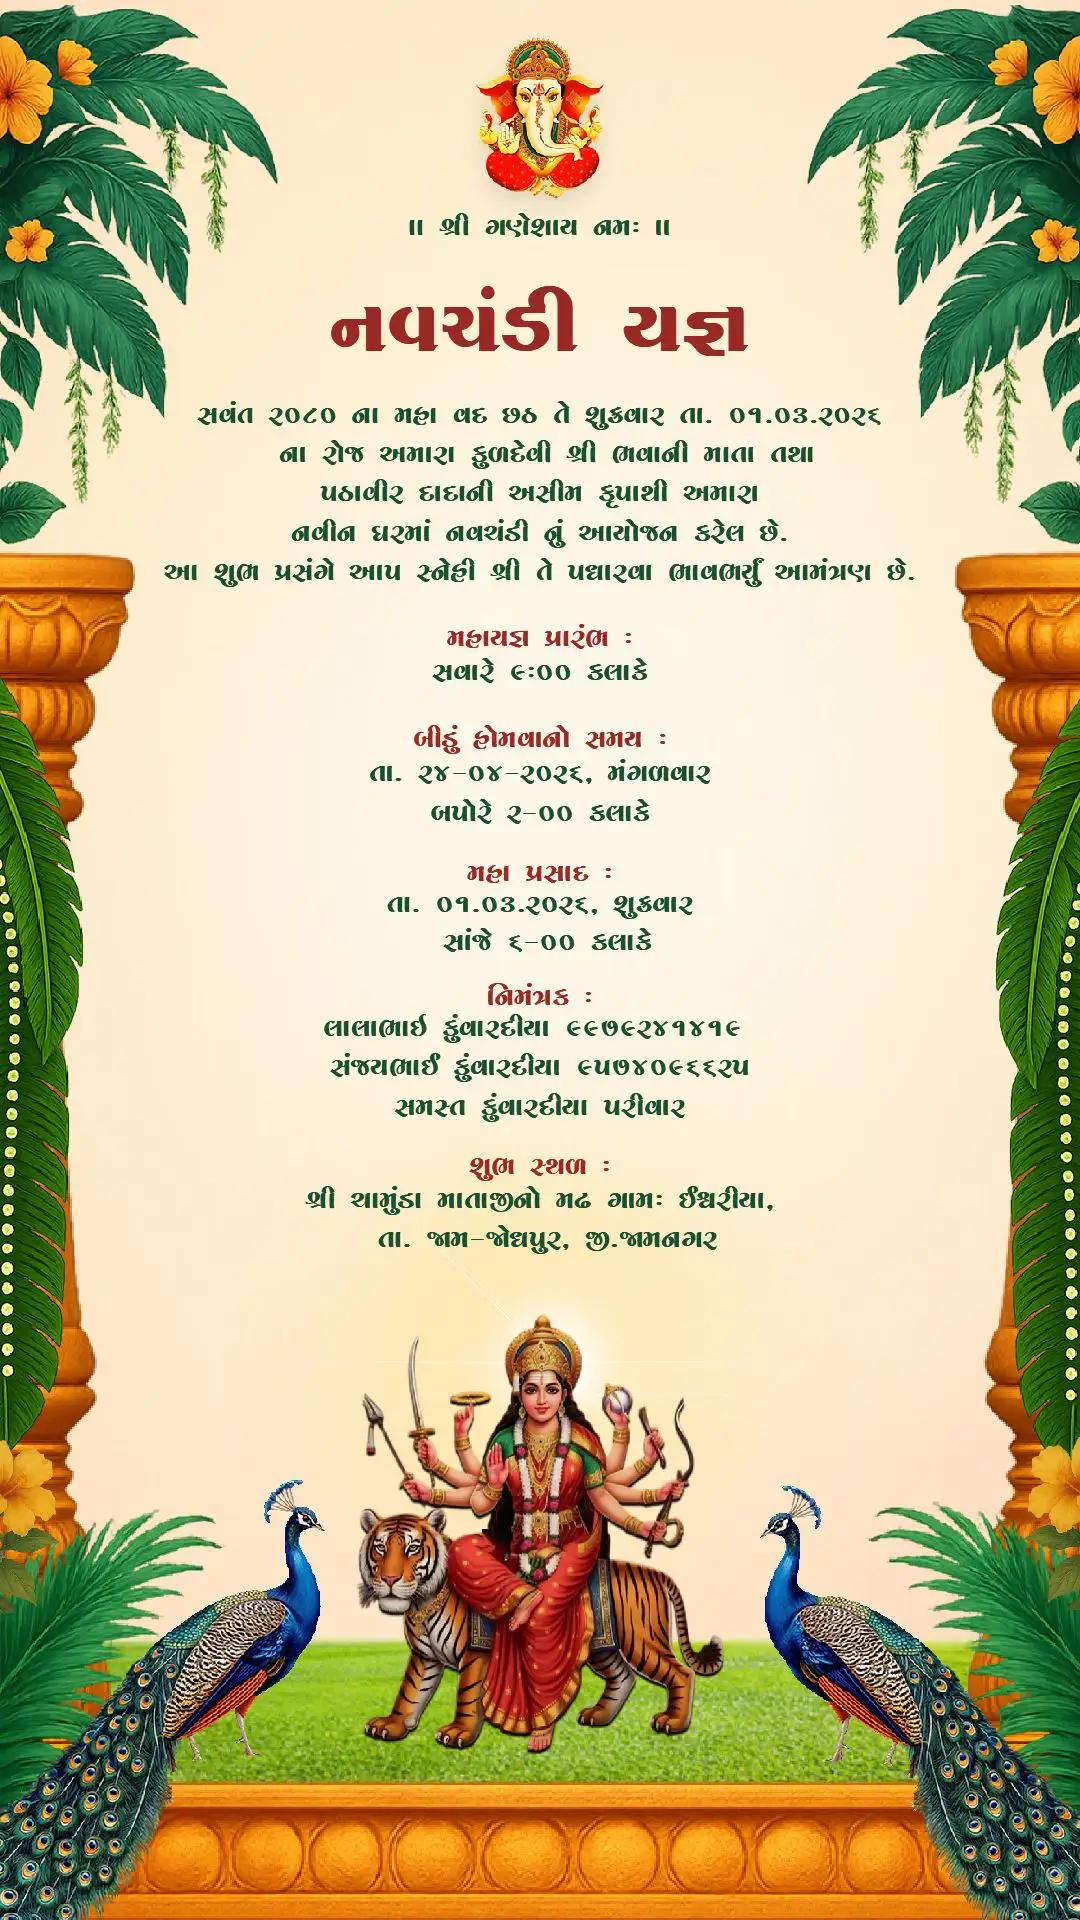 ॥ શ્રી ગણેશાય નમઃ ॥
નવચંડી યજ્ઞ
સવંત ૨૦૮૦ ના મહા વદ છઠ તે શુક્રવાર તા. ૦૧.૦૩.૨૦૨૬
ના રોજ અમારા કુળદેવી શ્રી ભવાની માતા તથા
પઠાવીર દાદાની અસીમ કૃપાથી અમારા
નવીન ઘરમાં નવચંડી નું આયોજન કરેલ છે.
આ શુભ પ્રસંગે આપ સ્નેહી શ્રી તે પધારવા ભાવભર્યું આમંત્રણ છે.
મહાયજ્ઞ પ્રારંભ :
સવારે ૯:૦૦ કલાકે
બીડું હોમવાનો સમય :
તા. ૨૪-૦૪-૨૦૨૬, મંગળવાર
બપોરે ૨-૦૦ કલાકે
મહા પ્રસાદ :
તા. ૦૧.૦૩.૨૦૨૬, શુક્રવાર
સાંજે ૬-૦૦ કલાકે
નિમંત્રક :
લાલાભાઇ કુંવારદીયા ૯૯૭૯૨૪૧૪૧૯
સંજયભાઈ કુંવારદીયા ૯૫૭૪૦૯૬૬૨૫
સમસ્ત કુંવારદીયા પરીવાર
શુભ સ્થળ :
શ્રી ચામુંડા માતાજીનો મઢ ગામઃ ઈશ્વરીયા,
તા. જામ-જોધપુર, જી.જામનગર